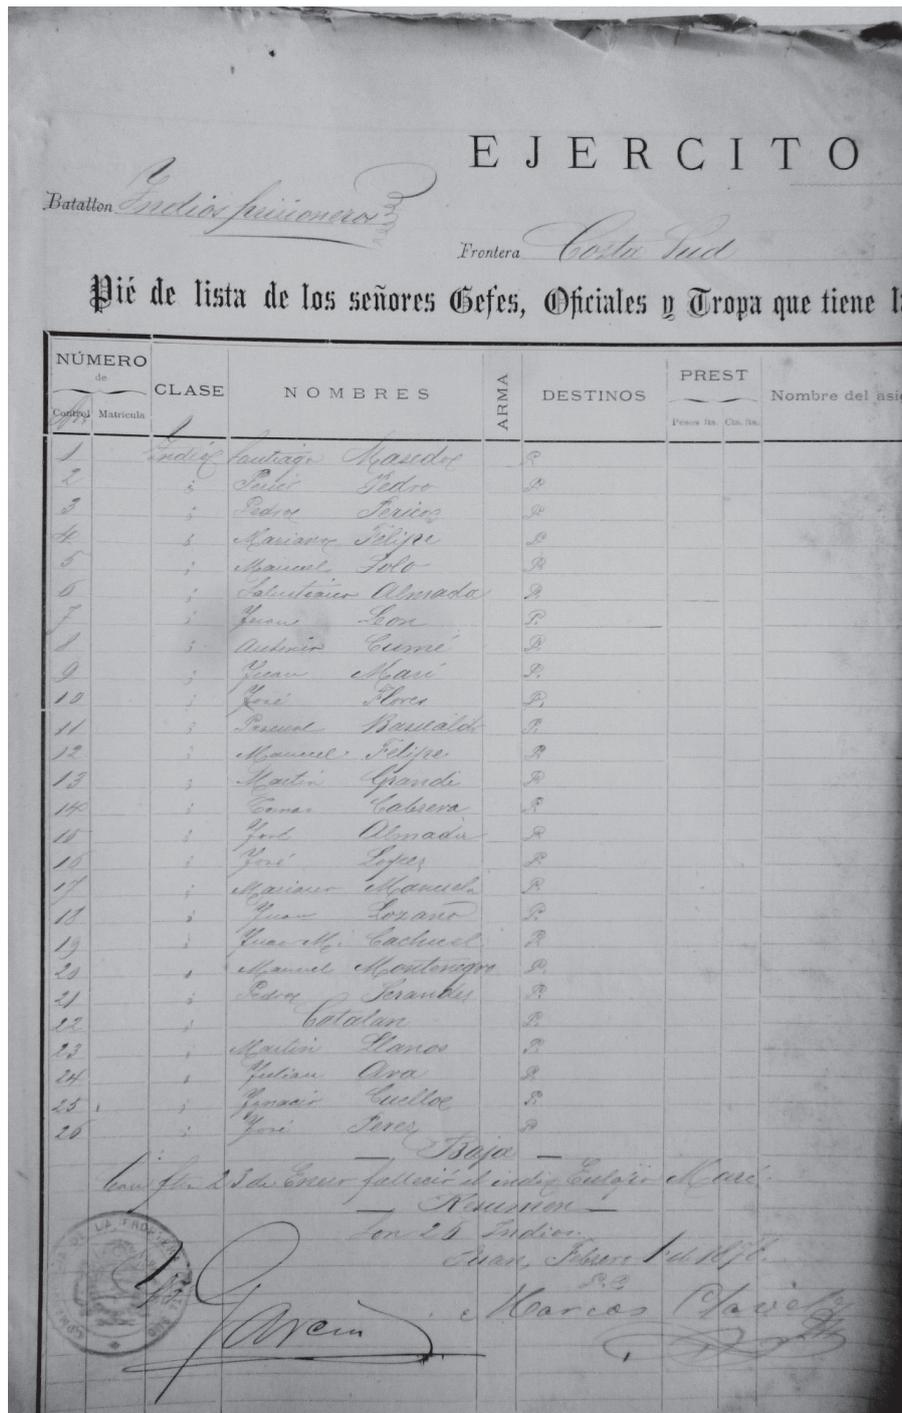 EJERCITO
Batallon Indios prisioneros
Frontera Costa Sud
Pié de lista de los señores Gefes, Oficiales y Tropa que tiene
NÚMERO de CLASE NOMBRES ARMA DESTINOS PREST Nombre del
Control Matrícula Pesos fts. Cts. fts.
1 Indio Santiago P.
2 " Pedro P.
3 " Pedro P.
4 " Mariano Felipe P.
5 " Manuel Solo P.
6 " Almada P.
7 " Juan Leon P.
8 " Cumé P.
9 " Juan Marí P.
10 " José Flores P.
11 " Pascual P.
12 " Manuel Felipe P.
13 " Martin Grande P.
14 " Tomas Cabrera P.
15 " José Almada P.
16 " José Lopez P.
17 " Mariano Manuel P.
18 " Juan Lozano P.
19 " Juan M. Cachuel P.
20 " Manuel Montenegro P.
21 " Pedro P.
22 " Catalan P.
23 " Martin Llanos P.
24 " Julian Ava P.
25 " Ignacio Cuello P.
26 " José Perez P.
— Baja —
Con fha 23 de Enero falleció el indio Marí.
— Resumen —
Son 26 Indios.
Febrero 1º de 1878.
Marcos
Garcia